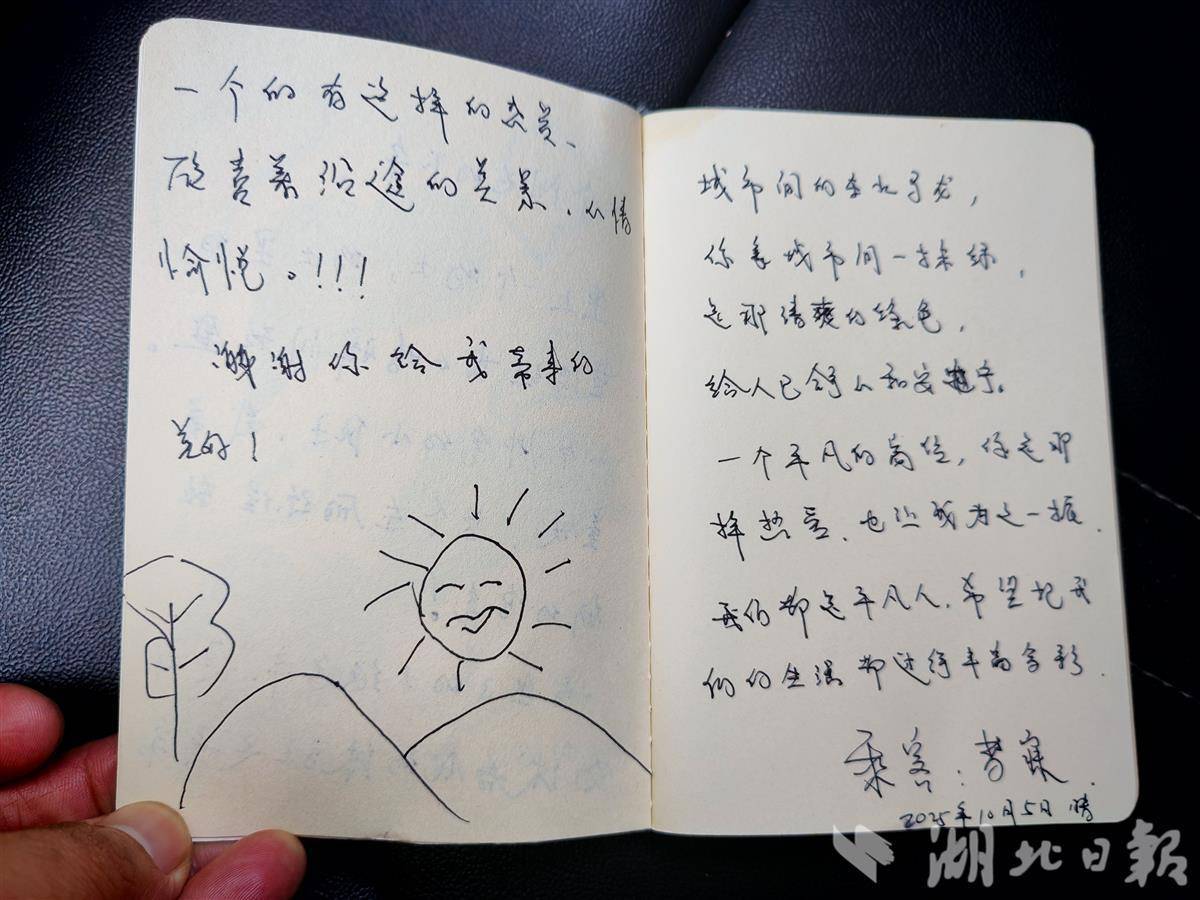 一个的有这样的
欣赏着沿途的美景，心情
愉悦。!!!
谢谢你给我带来的
美好!
城市间的车水马龙，
你是城市间一抹绿，
是那清爽的绿色，
给人已舒心和安
一个平凡的岗位，你是那
样热爱、也让我为之一振.
我们都是平凡人、希望把我
们的生活都过得丰富多彩.
乘客：
2025年10月5日 晴
湖北日報